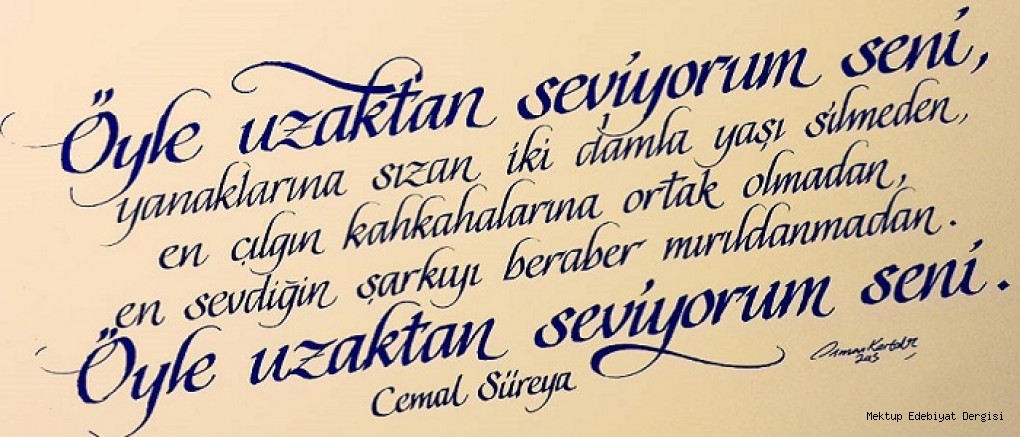 Öyle uzaktan seviyorum seni,
yanaklarına sızan iki damla yaşı silmeden,
en çılgın kahkahalarına ortak olmadan,
en sevdiğin şarkıyı beraber mırıldanmadan.
Öyle uzaktan seviyorum seni.
Cemal Süreya
Mektup Edebiyat Dergisi